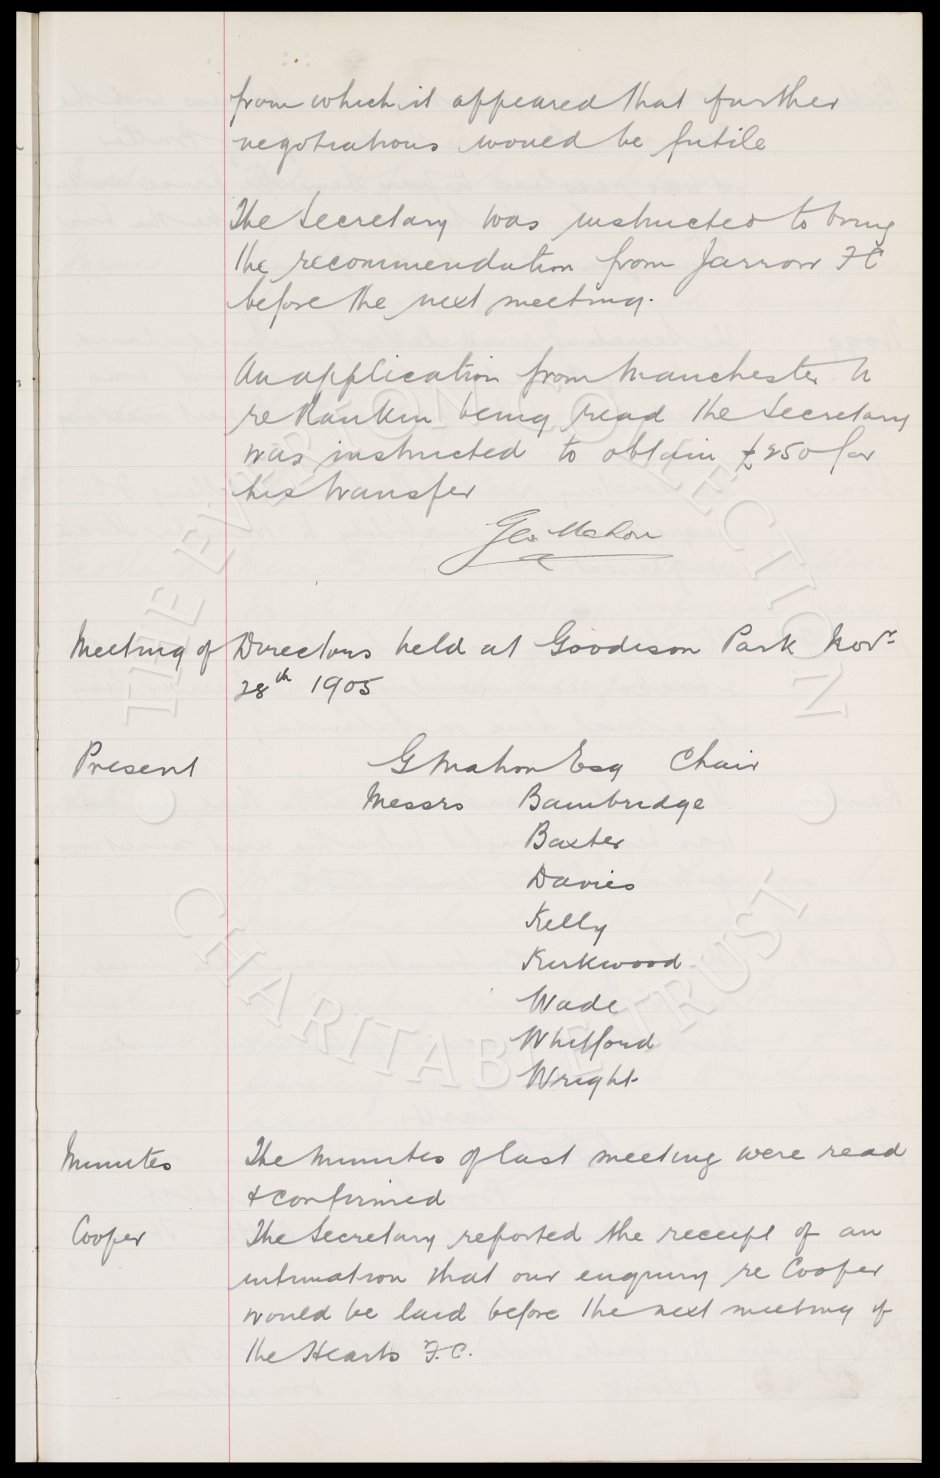 from which it appeared that further
negotiations would be futile
The Secretary was instructed to bring
the recommendation from Jarrow F C
before the next meeting.
An application from Manchester U
re Rankin being read the Secretary
was instructed to obtain £250 for
his transfer
Geo Mahon
Meeting of Directors held at Goodison Park Novr
28th 1905
Present G Mahon Esq Chair
Messrs Bainbridge
Baxter
Davies
Kelly
Kirkwood
Wade
Whitford
Wright
Minutes The Minutes of last meeting were read
& confirmed
Cooper The Secretary reported the receipt of an
intimation that our enquiry re Cooper
would be laid before the next meeting of
the Hearts F.C.
THE EVERTON COLLECTION
CHARITABLE TRUST